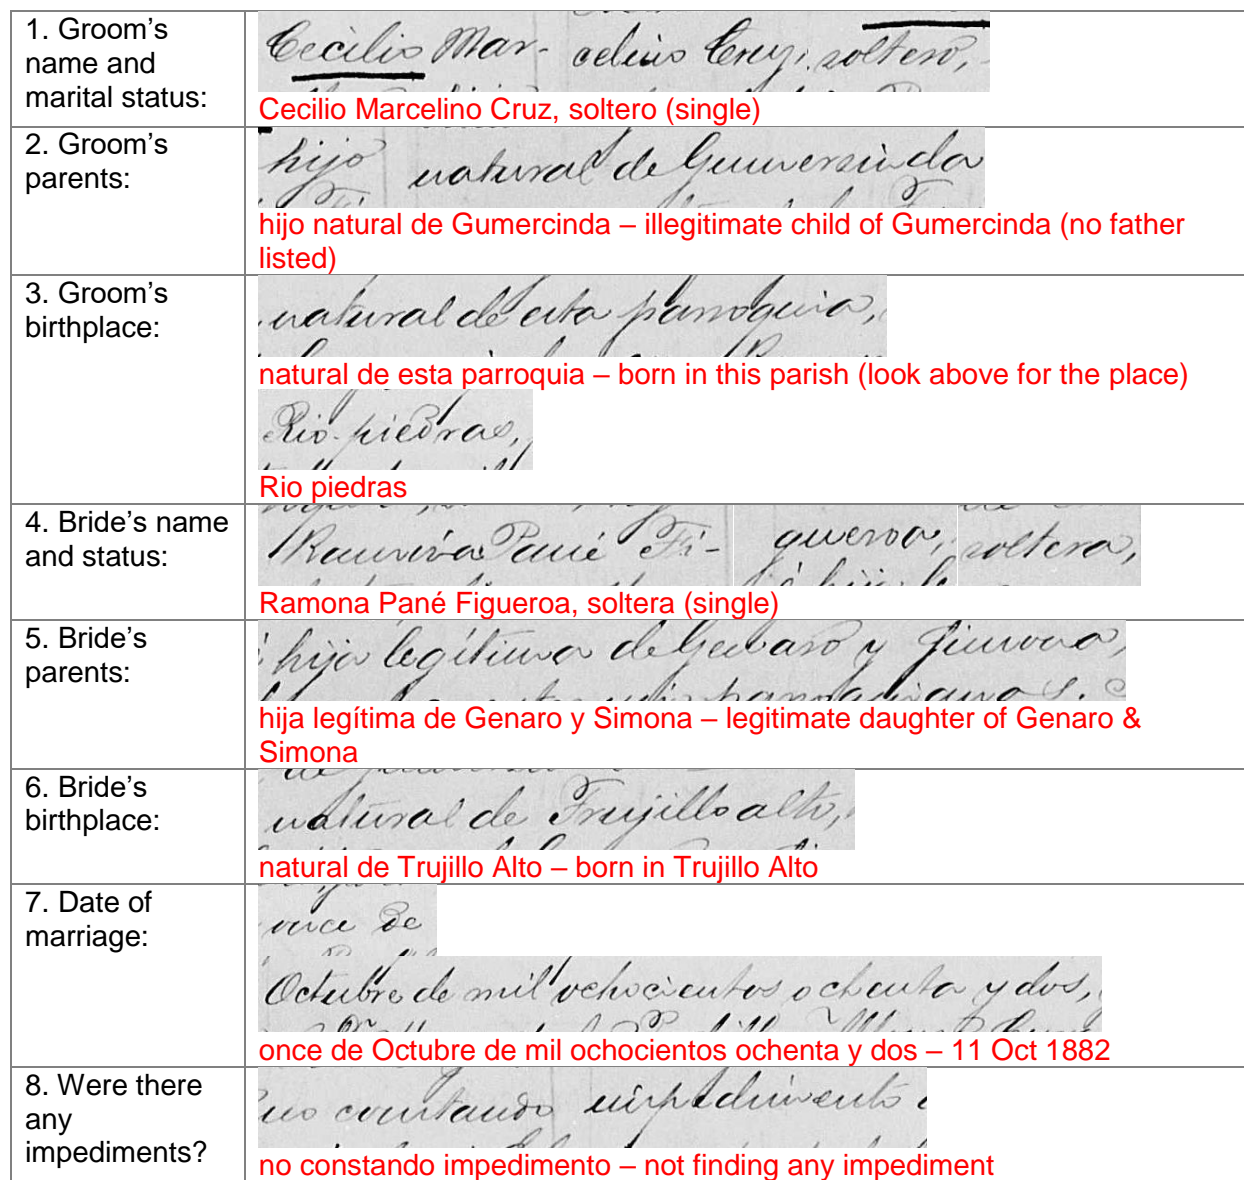 1. Groom's
name and
marital status:
Cecilio Mar- celino Cruz, soltero,
Cecilio Marcelino Cruz, soltero (single)
2. Groom's
parents:
hijo natural de Gumersinda
hijo natural de Gumercinda – illegitimate child of Gumercinda (no father
listed)
3. Groom's
birthplace:
natural de esta parroquia,
natural de esta parroquia – born in this parish (look above for the place)
Rio-piedras,
Rio piedras
4. Bride's name
and status:
Ramona Pané Fi- gueroa, soltera,
Ramona Pané Figueroa, soltera (single)
5. Bride's
parents:
hija legítima de Genaro y Simona,
hija legítima de Genaro y Simona – legitimate daughter of Genaro &
Simona
6. Bride's
birthplace:
natural de Trujillo alto,
natural de Trujillo Alto – born in Trujillo Alto
7. Date of
marriage:
once de
Octubre de mil ochocientos ochenta y dos,
once de Octubre de mil ochocientos ochenta y dos – 11 Oct 1882
8. Were there
any
impediments?
no constando impedimento
no constando impedimento – not finding any impediment